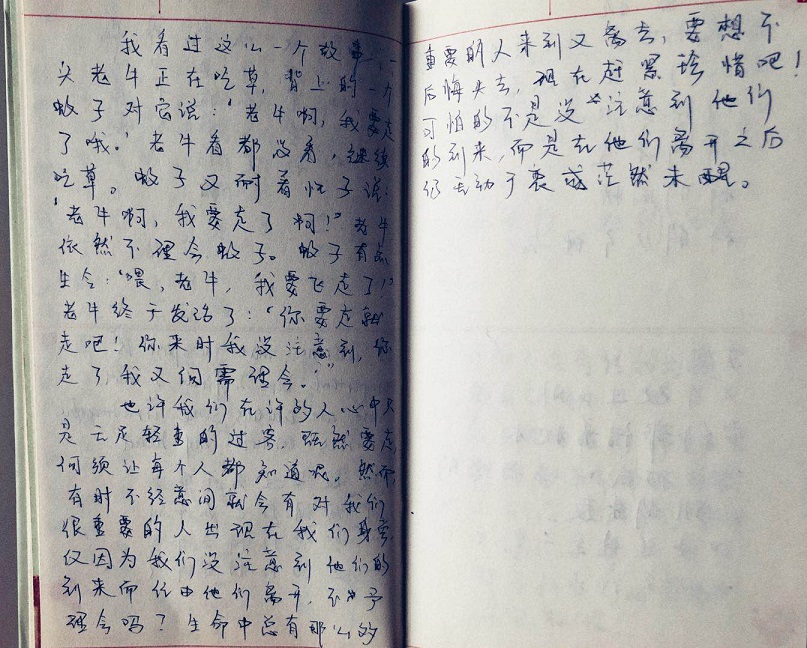 我看过这么一个故事,一
头老牛正在吃草,背上的一力
蚊子对它说:“老牛啊,我要走
了哦。”老牛看都没看,继续
吃草。蚊子又耐着性子说:
“老牛啊,我要走了啊!”老牛
依然不理会蚊子。蚊子有点
生会:“喂,老牛,我要飞走了!”
老牛终于发话了:“你要走就
走吧!你来时我没注意到,你
走了,我又何需理会。”
也许我们在许多人心中只
是无足轻重的过客,既然要走,
何须让每个人都知道呢。然而
有时不经意间就会有对我们
很重要的人出现在我们身旁,
仅因为我们没注意到他们的
到来而任由他们离开,不予
理会吗?生命中总有那么的
重要的人来到又离去,要想不
后悔失去,现在赶紧珍惜吧!
可怕的不是没注意到他们
的到来,而是在他们离开之后
仍无动于衷或茫然未醒。